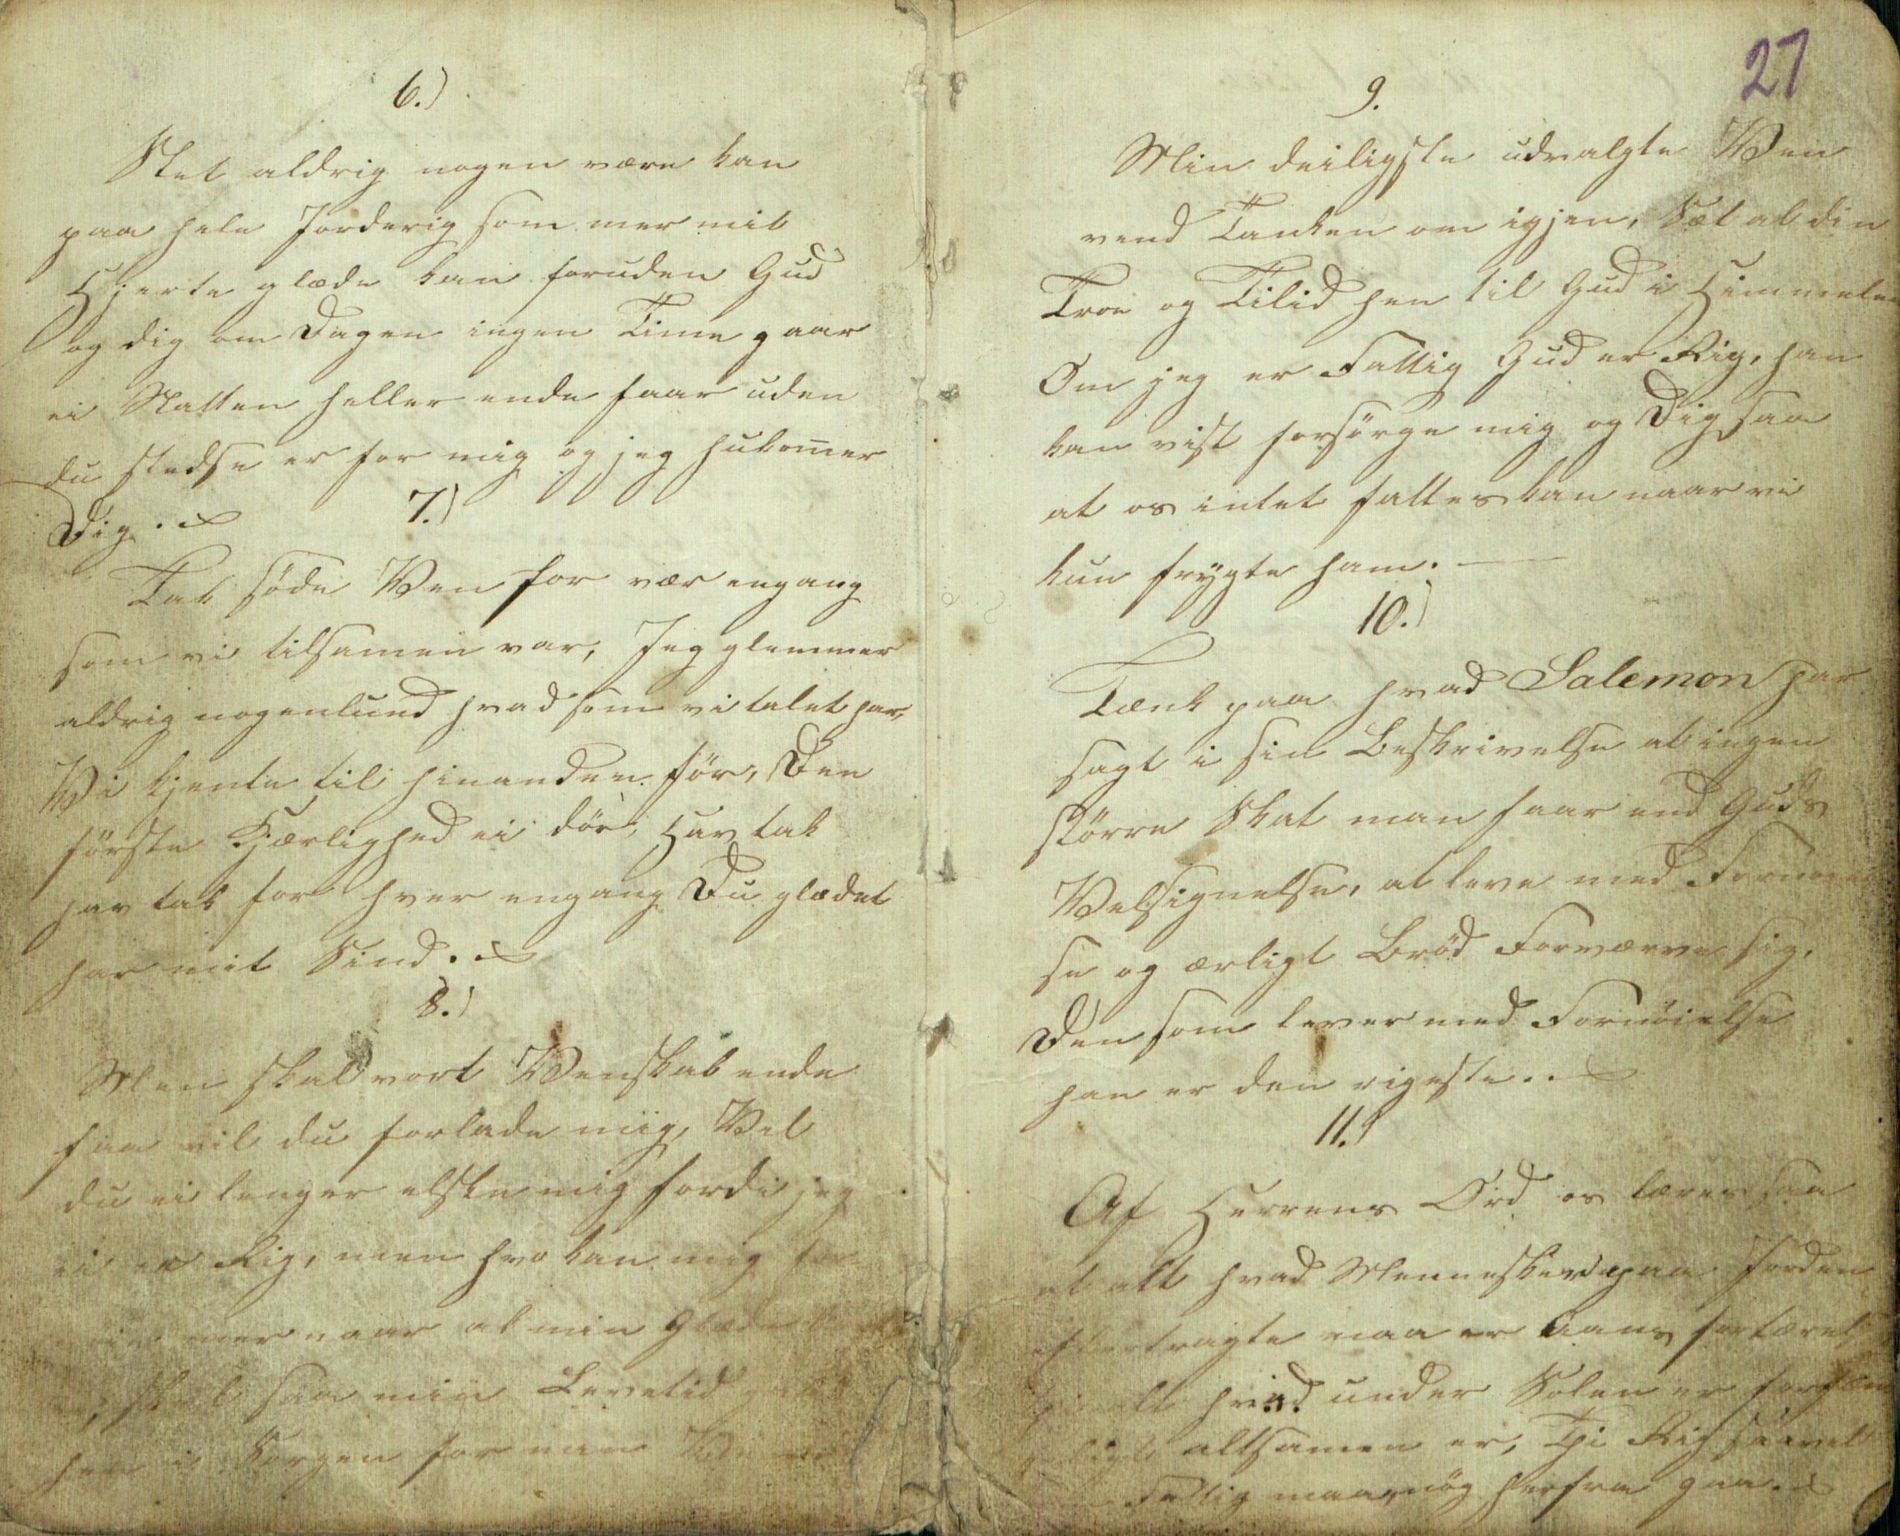 6.)
Slet aldrig nogen være kan
paa hele Jorderig som mer mit
Hjerte glæde kan foruden Gud
og dig om Dagen ingen Time gaar
ei Natten heller ende faar uden
du stedse er for mig og jeg hukom̄er
Dig.
7.)
Tak søde Ven for vær engang
som vi tilsamen var, Jeg glemmer
aldrig nogenlund hvad som vi talet har,
Vi kjente til hinanden før, Den
første Kjærlighed ei dør, Hav tak
hav tak for hver engang Du glædet
har mit Sind.
8.)
Men skal vort Venskab ende
faa vil du forlade mig, Vel
du ei lenger elske mig fordi jeg
ei er Rig, men hvo kan mig
mer naar al min Glæde
skal saa min Levetid
hen i Sorgen for min
27
9.
Min deiligste udvalgte Ven
vend Tanken om igjen, Sæt al din
Troe og Tilid hen til Gud i Himmelen
Om jeg er Fattig Gud er Rig, han
kan vist forsørge mig og Dig saa
at os intet fattes kan naar vi
kun frygte ham.
10.)
Tænk paa hvad Salemon har
sagt i sin Beskrivelse at ingen
større Skat man faar end Guds
Velsignelse, at leve med
se og ærligt Brød Forværve sig,
Den som lever med Fornøielse
han er den rigeste.
11.)
Af Herrens Ord os læres saa
at alt hvad Mennesker paa Jorden
eftertragte maa er
alt hvad under Solen er
altsamen er, Thi Rig saavel
Fattig maa nøg herfra gaa.